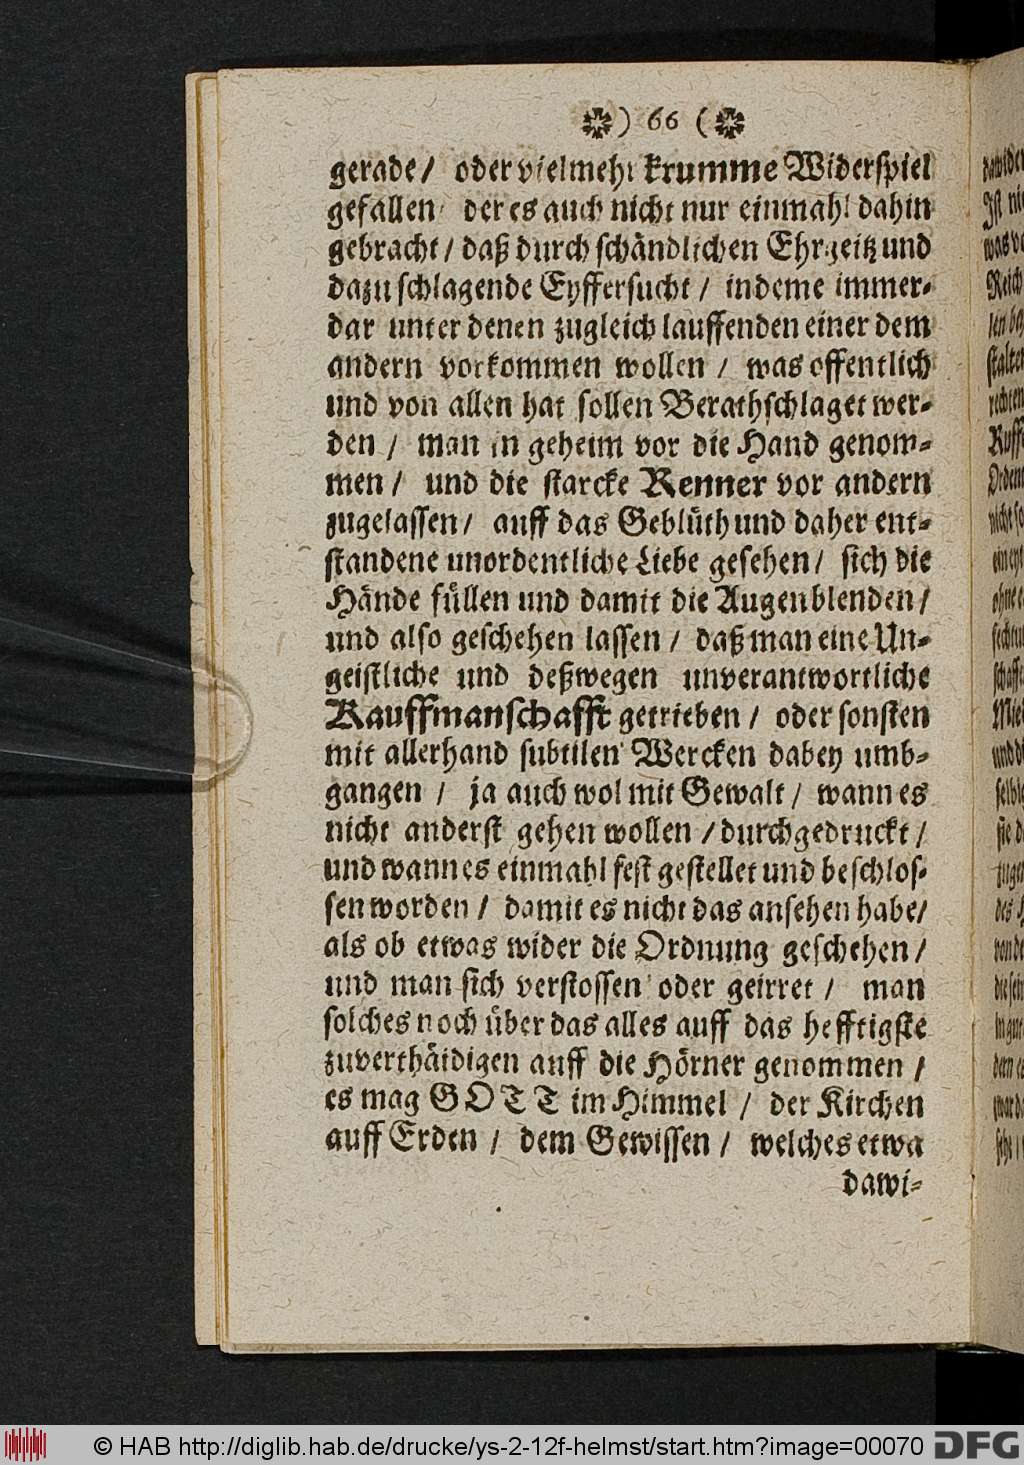 ❉) 66 (❉
gerade / oder vielmehr krumme Widerspiel
gefallen / der es auch nicht nur einmahl dahin
gebracht / daß durch schändlichen Ehrgeitz und
dazu schlagende Eyffersucht / indeme immer-
dar unter denen zugleich lauffenden einer dem
andern vorkommen wollen / was offentlich
und von allen hat sollen Berathschlaget wer-
den / man in geheim vor die Hand genom-
men / und die starcke Renner vor andern
zugelassen / auff das Geblüth und daher ent-
standene unordentliche Liebe gesehen / sich die
Hände füllen und damit die Augen blenden /
und also geschehen lassen / daß man eine Un-
geistliche und deßwegen unverantwortliche
Kauffmanschafft getrieben / oder sonsten
mit allerhand subtilen Wercken dabey umb-
gangen / ja auch wol mit Gewalt / wann es
nicht anderst gehen wollen / durchgedruckt /
und wann es einmahl fest gestellet und beschlos-
sen worden / damit es nicht das ansehen habe /
als ob etwas wider die Ordnung geschehen /
und man sich verstossen oder geirret / man
solches noch über das alles auff das hefftigste
zuverthäidigen auff die Hörner genommen /
es mag GOTT im Himmel / der Kirchen
auff Erden / dem Gewissen / welches etwa
dawi-
© HAB http://diglib.hab.de/drucke/ys-2-12f-helmst/start.htm?image=00070
DFG